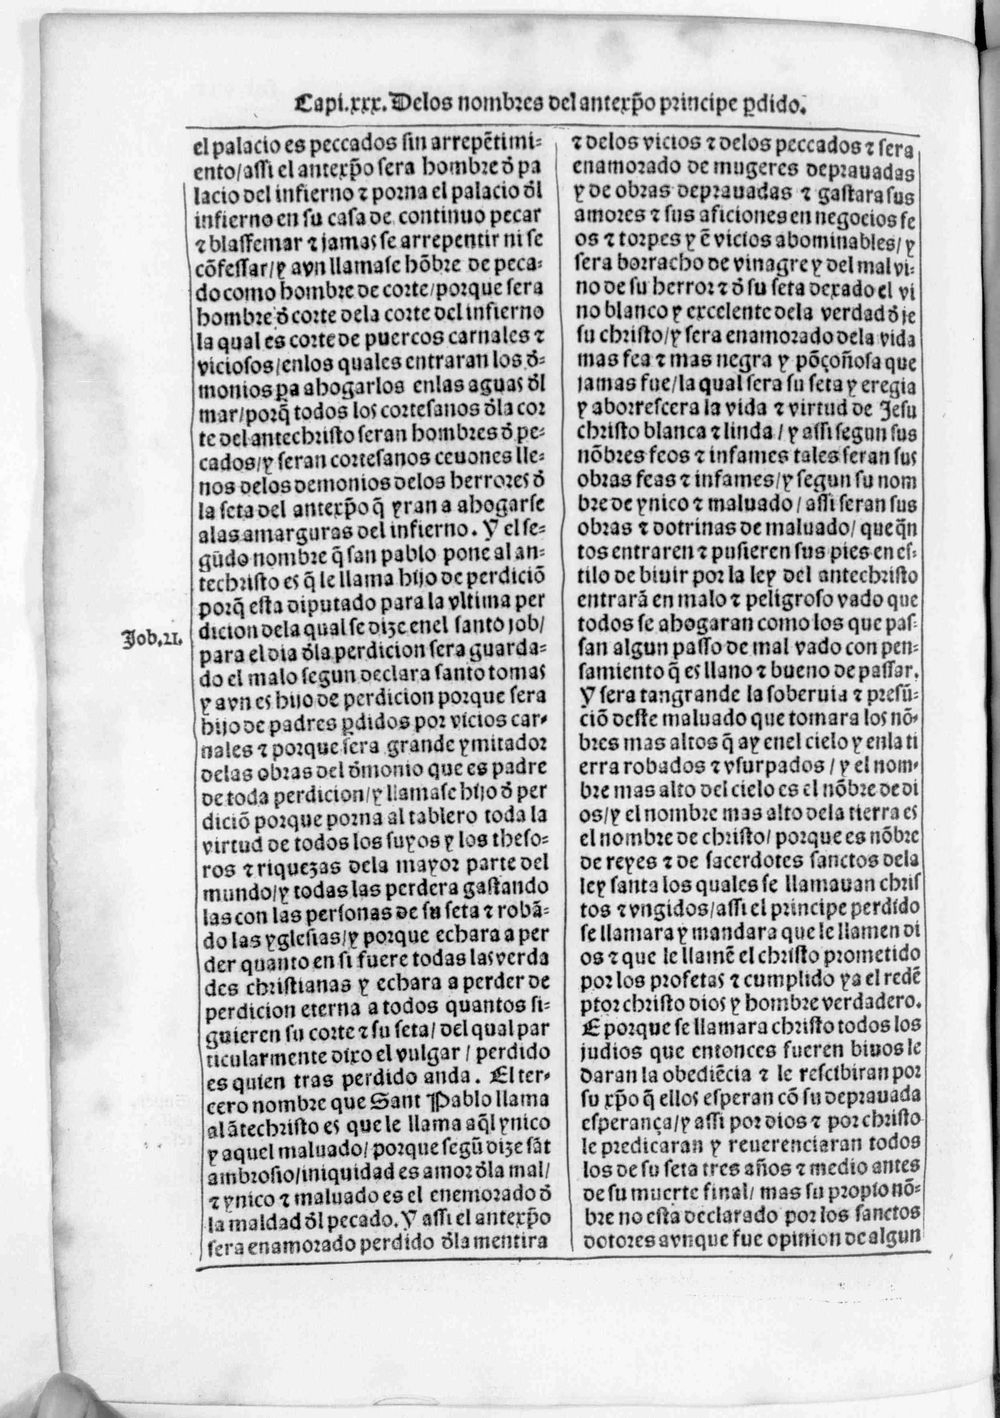 Capi.xxx. Delos nombres del antexp̄o principe ꝑdido.
el palacio es peccados sin arrepẽtimi-
ento/assi el antexp̄o sera hombre ð pa
lacio del infierno ⁊ porna el palacio ðl
infierno en su casa de continuo pecar
⁊ blassemar ⁊ jamas se arrepentir ni se
cõfessar/y avn llamase hõbre de peca-
do como hombre de corte/porque sera
hombre ð corte dela corte del infierno
la qual es corte de puercos carnales ⁊
viciosos/enlos quales entraran los ð-
monios ꝑa abogarlos enlas aguas ðl
mar/porq̃ todos los cortesanos ðla cor
te del antechristo seran hombres ð pe-
cados/y seran cortesanos ceuones lle-
nos delos demonios delos herrores ð
la seta del antexp̄o q̃ yran a ahogarse
alas amarguras del infierno. Y el se-
gũdo nombre q̃ san pablo pone al an-
techristo es q̃ le llama hijo de perdiciõ
porq̃ esta diputado para la vltima per
dicion dela qual se dize enel santo job/
Job.21.
para el dia ðla perdicion sera guarda-
do el malo segun declara santo tomas
y avn es hijo de perdicion porque sera
hijo de padres ꝑdidos por vicios car-
nales ⁊ porque sera grande ymitador
delas obras del ðmonio que es padre
de toda perdicion/y llamase hijo ð per
diciõ porque porna al tablero toda la
virtud de todos los suyos y los theso-
ros ⁊ riquezas dela mayor parte del
mundo/y todas las perdera gastando
las con las personas de su seta ⁊ robã-
do las yglesias/y porque echara a per
der quanto en si fuere todas las verda
des christianas y echara a perder de
perdicion eterna a todos quantos si-
guieren su corte ⁊ su seta/ del qual par
ticularmente dixo el vulgar / perdido
es quien tras perdido anda. El ter-
cero nombre que Sant Pablo llama
al ãtechristo es que le llama aq̃l ynico
y aquel maluado/ porque segũ dize sãt
ambrosio/iniquidad es amor ðla mal/
⁊ ynico ⁊ maluado es el enemorado ð
la maldad ðl pecado. Y assi el antexp̄o
sera enamorado perdido ðla mentira
⁊ delos vicios ⁊ delos peccados ⁊ sera
enamorado de mugeres deprauadas
y de obras deprauadas ⁊ gastara sus
amores ⁊ sus aficiones en negocios fe
os ⁊ torpes y ẽ vicios abominables/ y
sera borracho de vinagre y del mal vi-
no de su herror ⁊ ð su seta dexado el vi
no blanco y excelente dela verdad ð je
su christo/y sera enamorado dela vida
mas fea ⁊ mas negra y põçoñosa que
jamas fue/la qual sera su seta y eregia
y aborrescera la vida ⁊ virtud de Jesu
christo blanca ⁊ linda / y assi segun sus
nõbres feos ⁊ infames tales seran sus
obras feas ⁊ infames/y segun su nom
bre de ynico ⁊ maluado/ assi seran sus
obras ⁊ dotrinas de maluado/ que q̃n
tos entraren ⁊ pusieren sus pies en es-
tilo de biuir por la ley del antechristo
entrarã en malo ⁊ peligroso vado que
todos se ahogaran como los que pas-
san algun passo de mal vado con pen-
samiento q̃ es llano ⁊ bueno de passar.
Y sera tan grande la soberuia ⁊ presũ-
ciõ deste maluado que tomara los nõ-
bres mas altos q̃ ay enel cielo y enla ti
erra robados ⁊ vsurpados / y el nom-
bre mas alto del cielo es el nõbre de di
os/y el nombre mas alto dela tierra es
el nombre de christo/ porque es nõbre
de reyes ⁊ de sacerdotes sanctos dela
ley santa los quales se llamauan chris
tos ⁊ vngidos/assi el principe perdido
se llamara y mandara que le llamen di
os ⁊ que le llamẽ el christo prometido
por los profetas ⁊ cumplido ya el redẽ
ptor christo dios y hombre verdadero.
E porque se llamara christo todos los
judios que entonces fueren biuos le
daran la obediẽcia ⁊ le rescibiran por
su xp̄o q̃ ellos esperan cõ su deprauada
esperança/y assi por dios ⁊ por christo
le predicaran y reuerenciaran todos
los de su seta tres años ⁊ medio antes
de su muerte final/ mas su propio nõ-
bre no esta declarado por los sanctos
dotores avnque fue opinion de algun